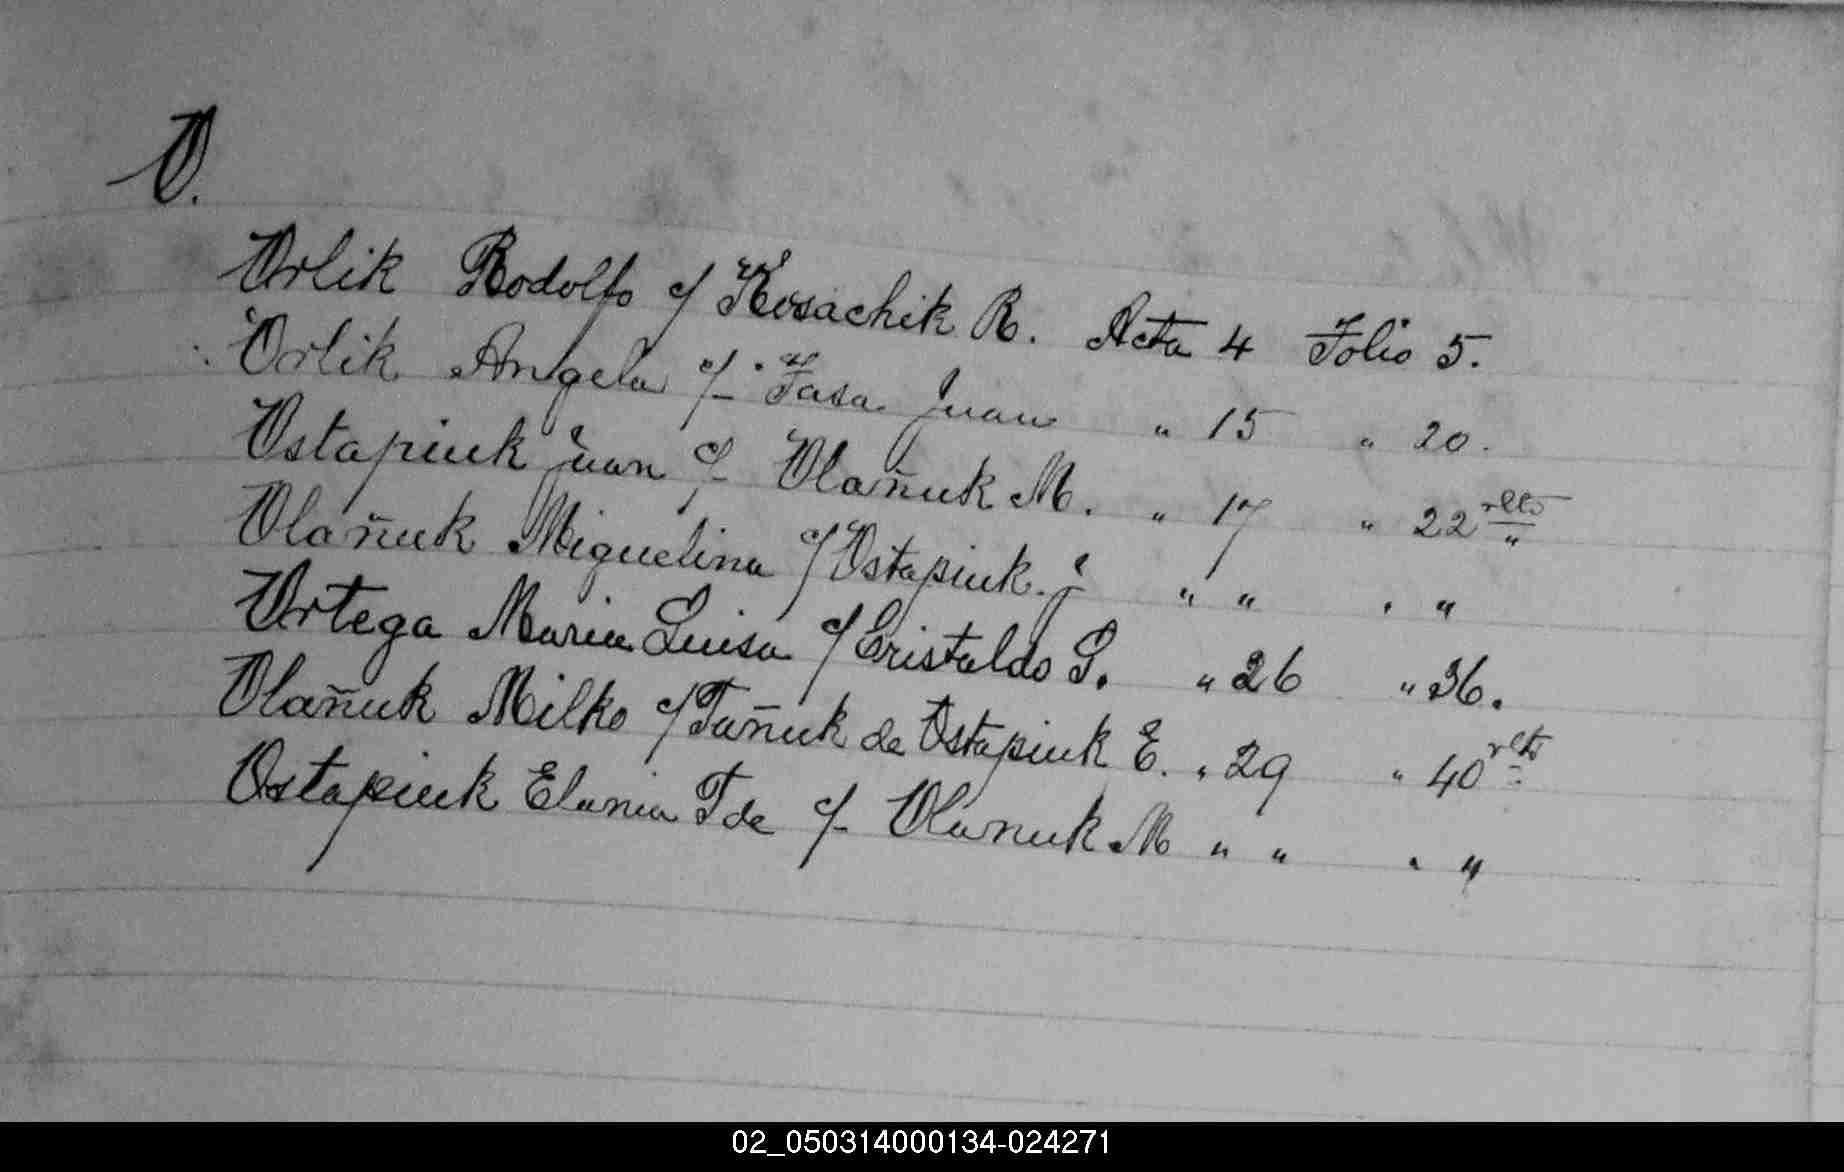 O.
Orlik Rodolfo c/ Kosachik R. Acta 4 Folio 5.
Orlik Angela c/ Fasa Juan " 15 " 20.
Ostapiuk Juan c/ Olañuk M. " 17 " 22 vlto "
Olañuk Miguelina c/ Ostapiuk J " " " "
Ortega Maria Luisa c/ Cristaldo G. " 26 " 36.
Olañuk Milko c/ Tañuk de Ostapiuk E. " 29 " 40 vlto
Ostapiuk Elania T de c/ Olanuk M " " " "
02_050314000134-024271